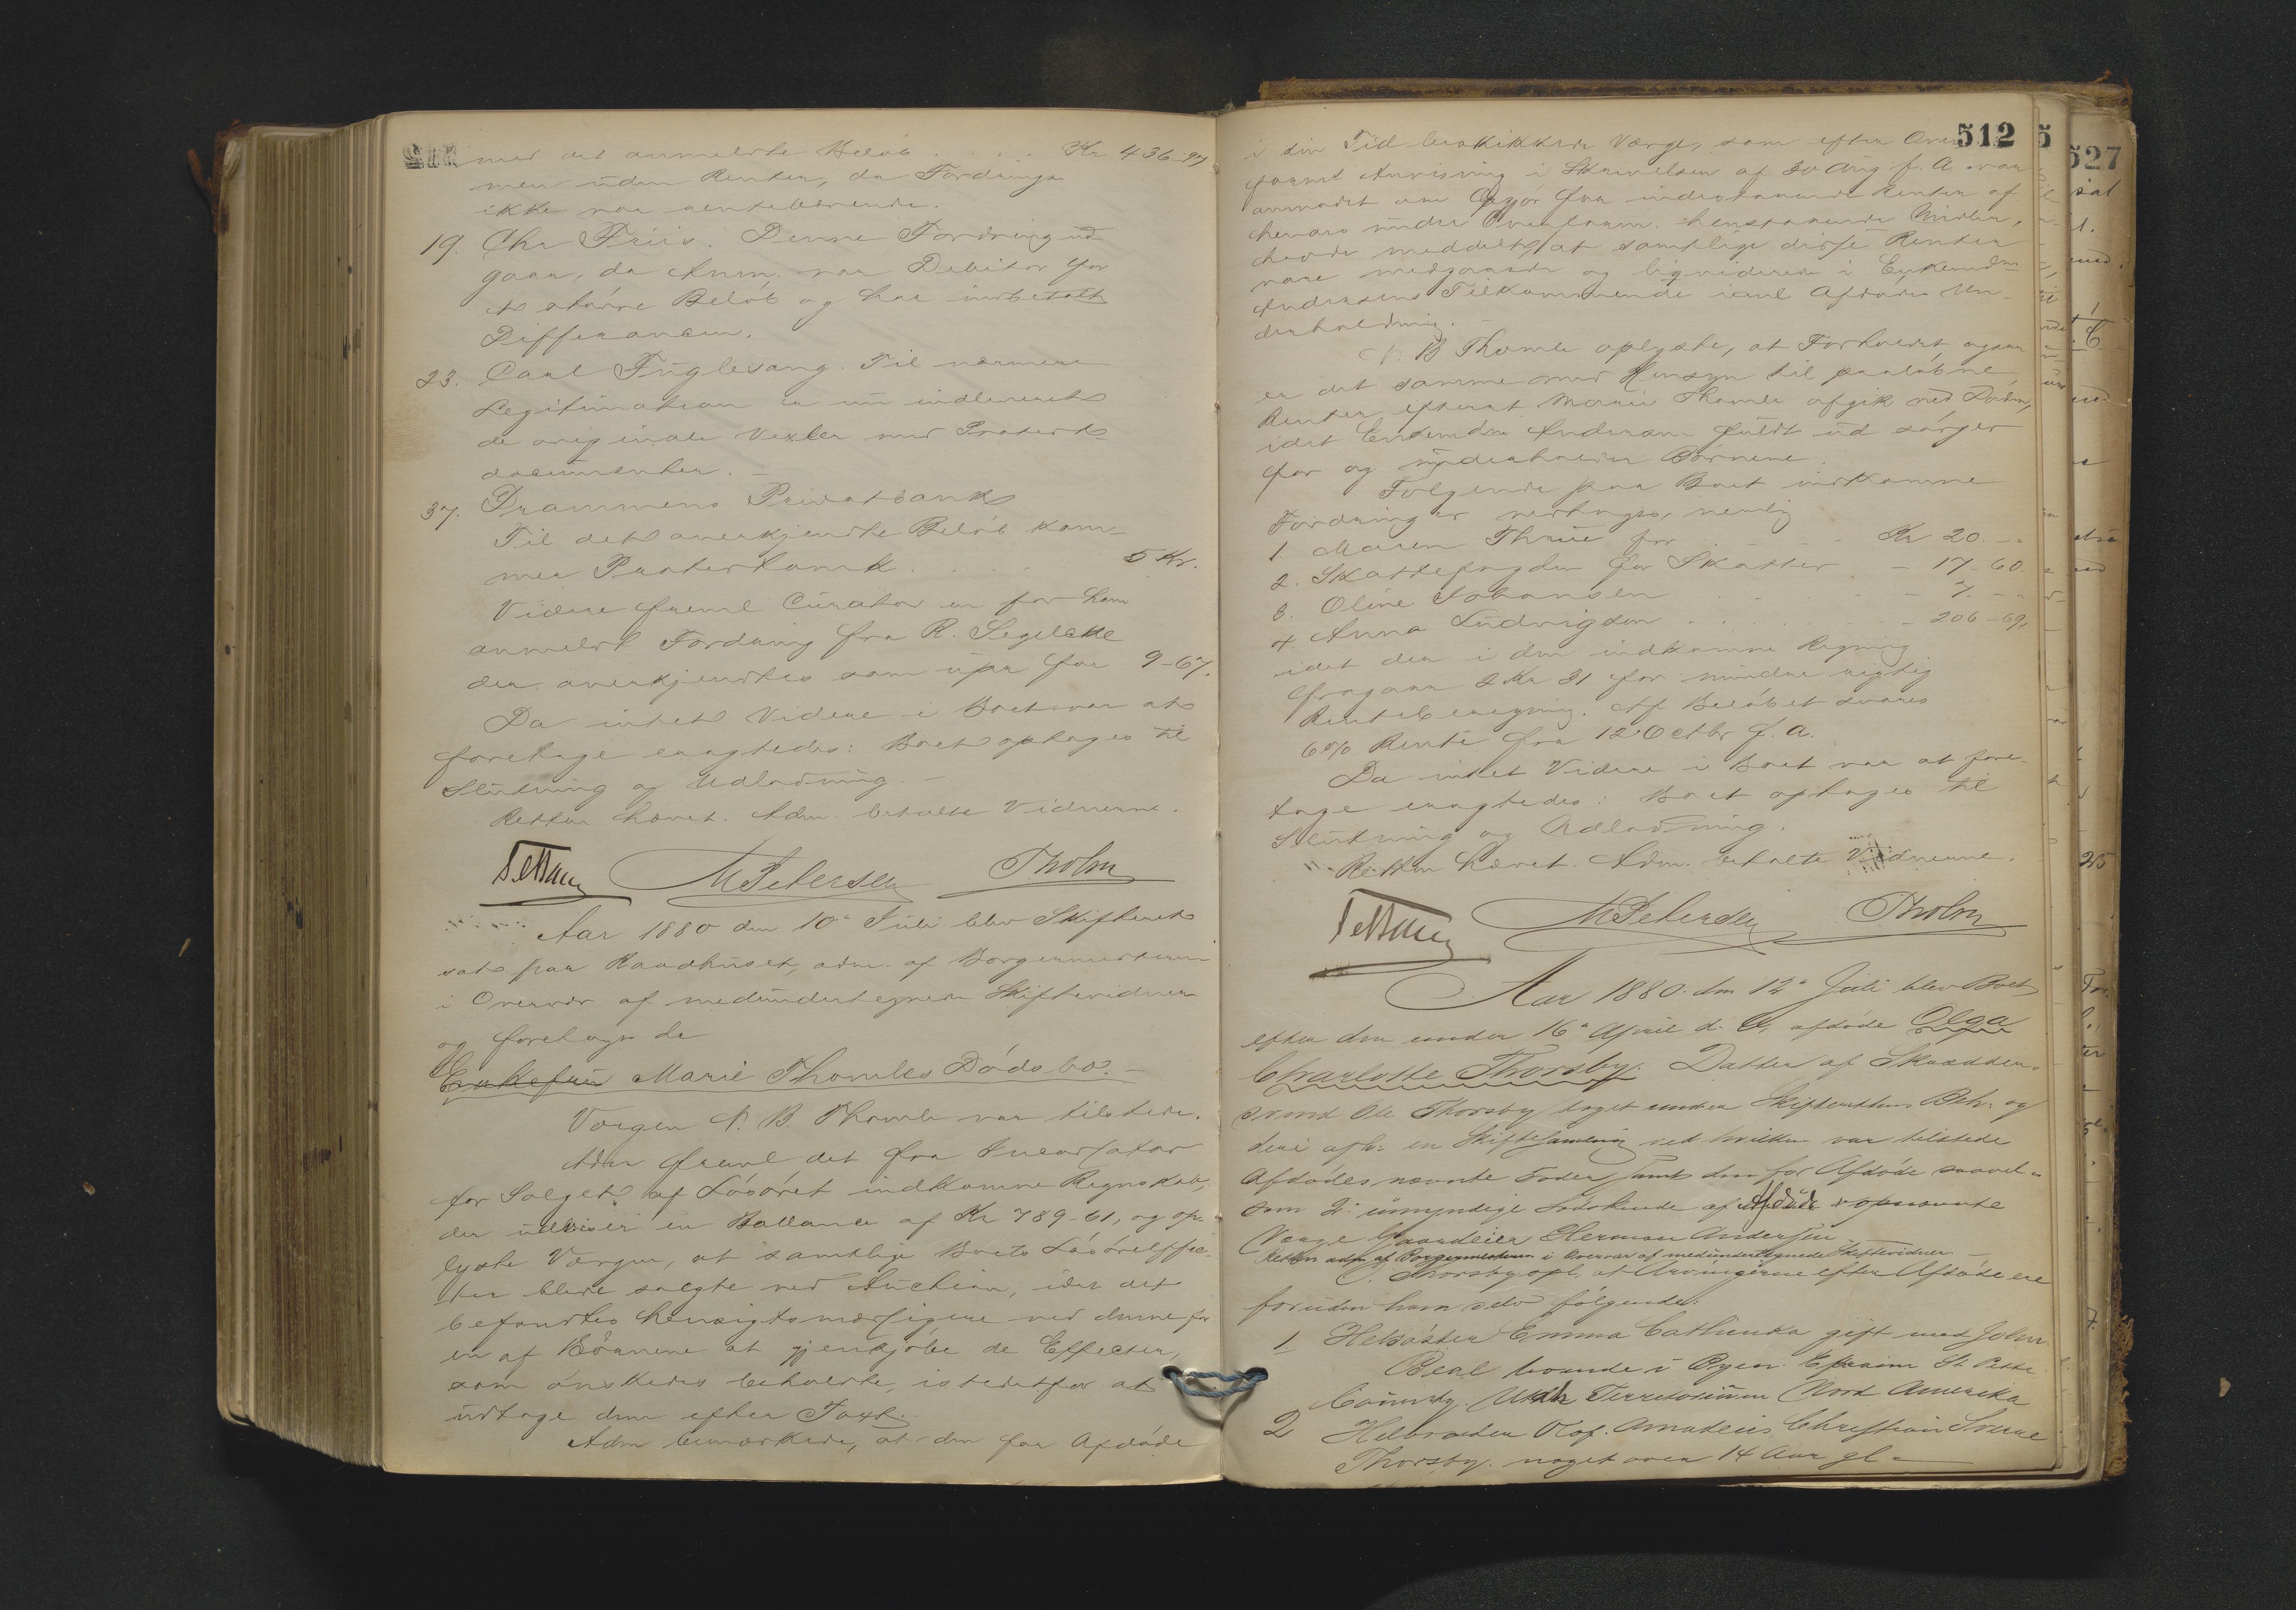 med det anmeldte Beløb . . . Kr 436.97
men uden Renter, da Fordringen
ikke var rentebærende.
19. Chr Friis. Denne Fordring ud-
gaar, da Anm. var Debitor for
et større Beløb og har indbetalt
Differancen.
23. Carl Fuglesang. Til nærmere
Legitimation er nu indleveret
de originale Vexler med Protest-
documenter. –
37. Drammens Privatbank
Til det anerkjendte Beløb kom-
mer Protestomk. . . . 5 Kr.
Videre freml Curator en for ham
anmeldt Fordring fra R. Segelcke
der anerkjendtes som upr for 9-67.
Da intet Videre i Boet var at
foretage eragtedes: Boet optages til
Slutning og Udlodning. –
Retten hævet. Adm. betalte Vidnerne.
M Petersen Tholm
Aar 1880 den 10de Juli blev Skifteret
sat paa Raadhuset, adm. af Borgermesteren
i Overvær af medundertegnede Skiftevidner
og foretoges de
Enkefru Marie Thomles Dødsbo. –
Vergen N. B. Thomle var tilstede.
Adm freml det fra Incassator
for Salget af Løsøret indkomne Regnskab,
der udviser en Ballance af Kr 789-61, og op-
lyste Vergen, at samtlige Boets Løsøreffec-
ter bleve solgte ved Auction, idet det
befandtes hensigtsmæssigere ved denne for
en af Børnene at gjenkjøbe de Effecter,
som ønskedes beholdte, istedetfor at
udtage dem efter Taxt.
Adm bemærkede, at den for Afdøde
512
527
i sin Tid beskikkede Værge, som efter Over-
form. Anvisning i Skrivelsen af 30 Aug f. A. var
anmodet om Opgjør for indestaaende Renter af
hendes under Overform. henstaaende Midler,
havde meddelt, at samtlige disse Renter
vare medgaaede og ligviderede i Enkemdm
Andersens Tilkommende ianl Afdødes Un-
derholdning. –
N. B Thomle oplyste, at Forholdet ogsaa
er det samme med Hensyn til paaløbne
Renter, efterat Marie Thomle afgik ved Døden,
idet Enkemdm Andersen fuldt ud sørger
for og underholder Børnene.
Følgende paa Boet indkomne
Fordringer vedtoges, nemlig
1. Maren Thrue for . . . Kr 20. – „
2. Skattefogden for Skatter – 17-60.
3. Oline Johansen . . . – 7. – „
4. Anna Ludvigsen . . . – 206-69,
idet der i den indkomne Regning
fragaar 2 Kr 31 for mindre rigtig
Renteberegning. Af Beløbet svares
6% Rente fra 12 Octbr f. A.
Da intet Videre i Boet var at fore-
tage eragtedes: Boet optages til
Slutning og Udlodning.
Retten hævet. Adm. betalte Vidnerne.
M Petersen Tholm
Aar 1880. den 12te Juli blev Boet
efter den under 16de April d. A. afdøde Olga
Charlotte Thorsby. Datter af Skrædder-
svend Ole Thorsby taget under Skifterettens Beh. og
deri afh. en Skiftesamling ved hvilken var tilstede
Afdødes nævnte Fader samt den for Afdøde saavel-
som 2de umyndige Sødskende af Afdøde opnævnte
Verge Gaardeier Herman Andersen
Retten adm af Borgermesteren i Overvær af medundertegnede Skiftevidner –
Thorsby opl. at Arvingerne efter Afdøde ere
foruden ham selv følgende:
1 Helsøster Emma Cathinka gift med John
Beal boende i Byen Efraim St. Pette
County. Utah Territorium Nord Amerika
2 Helbroder Olaf. Amadeus Christian Sverre
Thorsby. noget over 14 Aar gl –